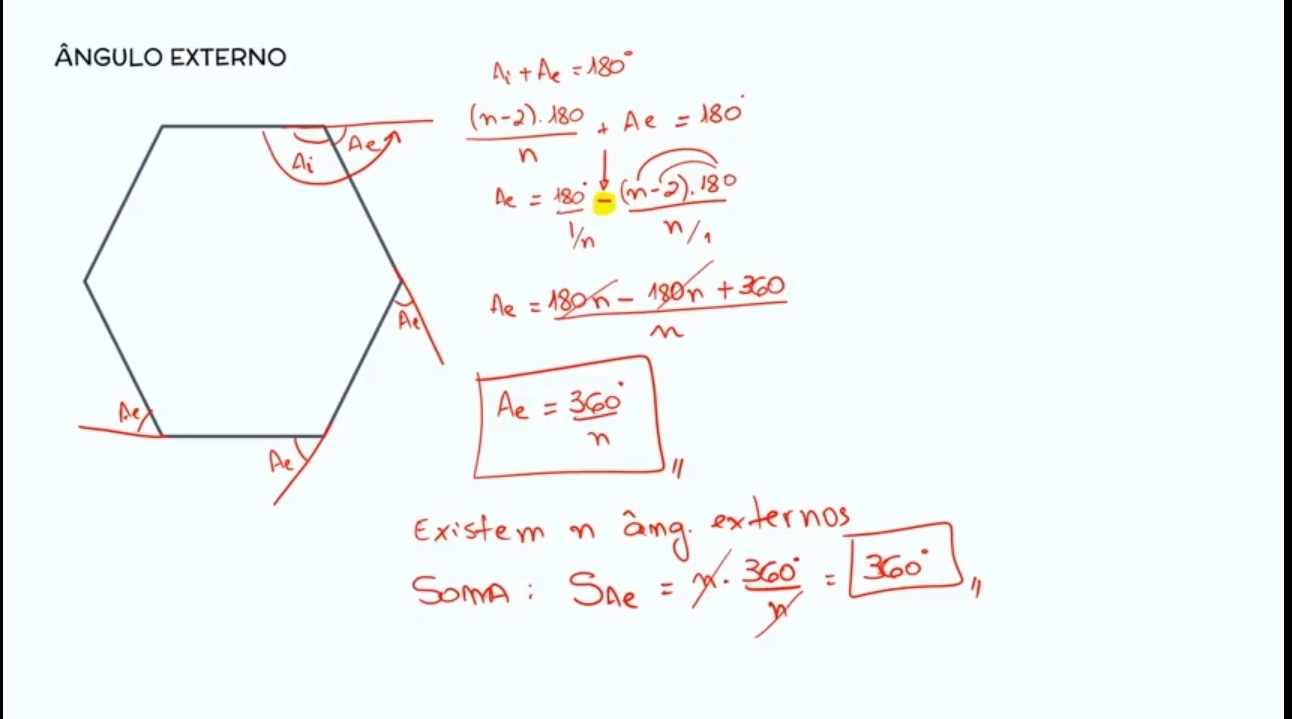 ÂNGULO EXTERNO
Ai + Ae = 180°
(n-2). 180 / n + Ae = 180°
Ae = 180° / 1/n - (n-2). 180 / n/1
Ae = 180n - 180n + 360 / n
Ae = 360° / n
Ai
Ae
Ae
Ae
Ae
Existem n âng. externos
SOMA : SAe = n. 360° / n = 360°